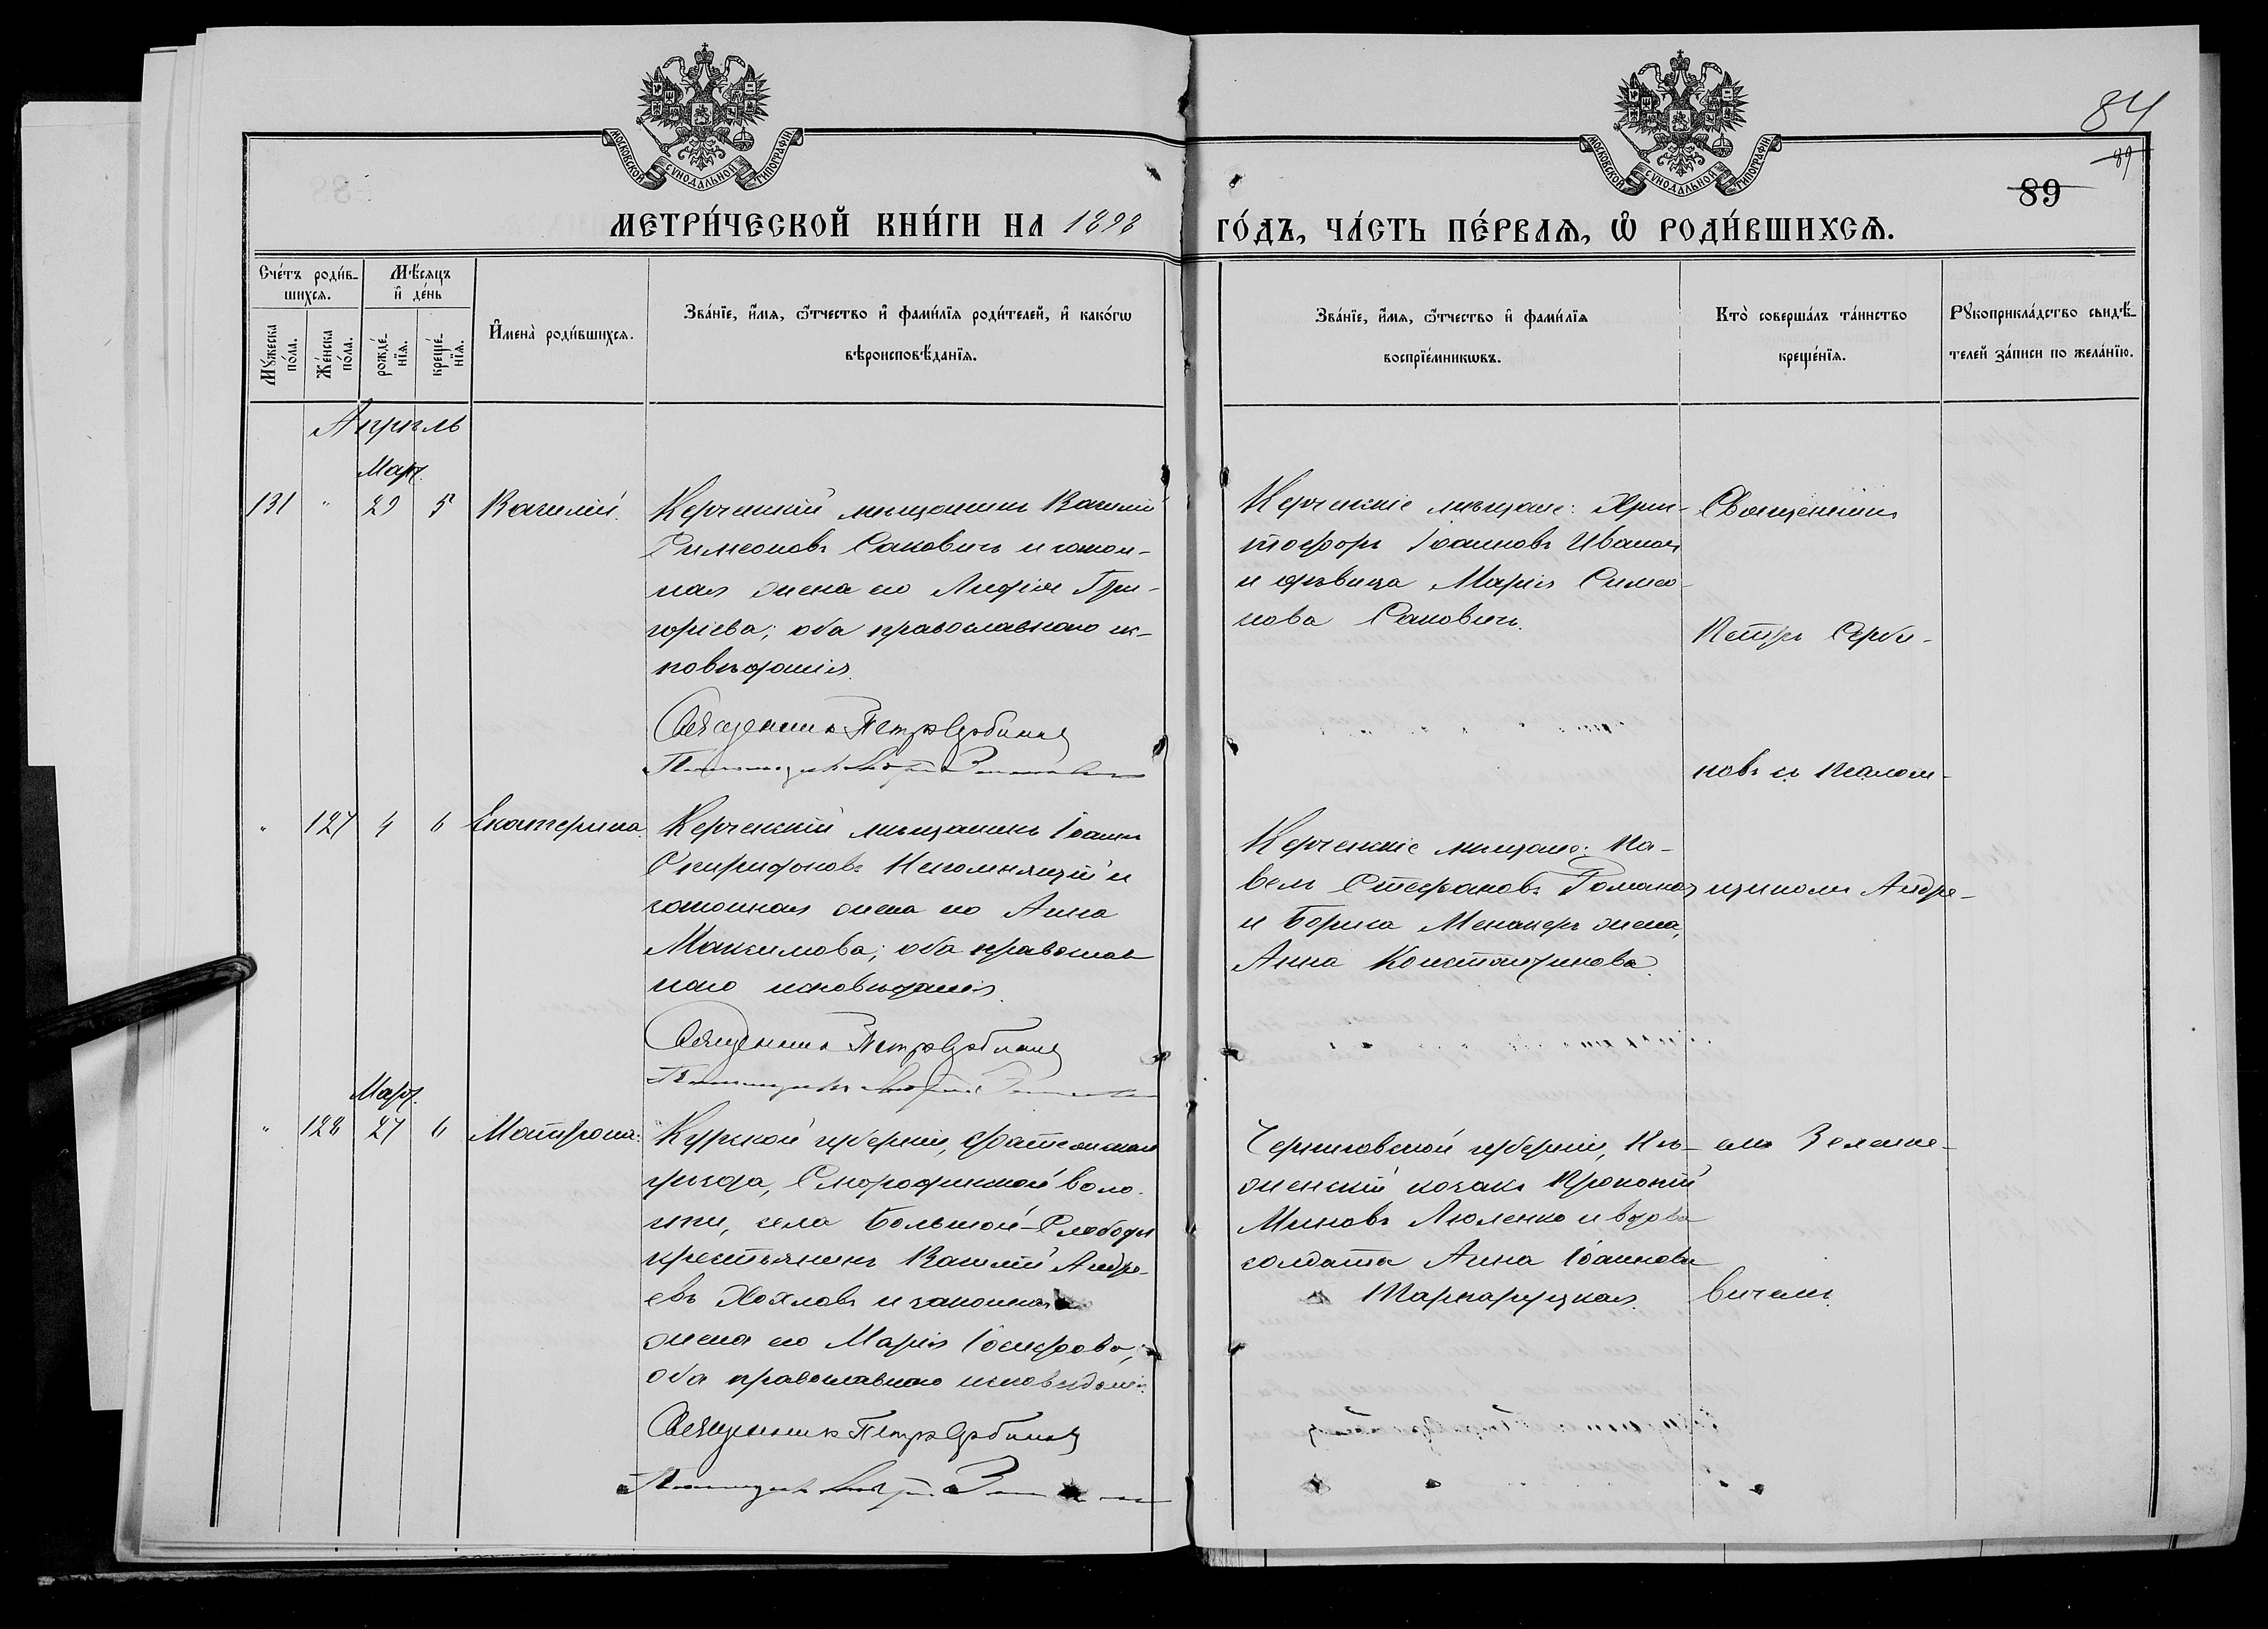 МОСКОВСКОЙ СѴНОДАЛЬНОЙ ТИПОГРАФІИ
МОСКОВСКОЙ СѴНОДАЛЬНОЙ ТИПОГРАФІИ
84
89
89
МЕТРИ́ЧЕСКОЙ КНИ́ГИ НА 1898
ГО́ДЪ, ЧА́СТЬ ПЕ́РВАѦ, Ѡ҆ РОДИ́ВШИХСѦ.
Сче́тъ роди́в-
шихсѧ.
Мѣ́сѧцъ
и҆ де́нь
Мꙋ́жеска
по́ла.
Же́нска
по́ла.
рожде́-
нїѧ.
креще́-
нїѧ.
И҆мена̀ роди́вшихсѧ.
Зва́нїе, и҆́мѧ, ѻ҆́тчество и҆ фами́лїѧ роди́телей, и҆ како́гѡ
вѣроисповѣ́данїѧ.
Зва́нїе, и҆́мѧ, ѻ҆́тчество и҆ фами́лїѧ
воспрїе́мникѡвъ.
Кто̀ соверша́лъ та́инство
креще́нїѧ.
Рꙋкоприкла́дство свидѣ́-
телей за́писи по жела́нїю.
Апрѣль
Мар.
131 " 29 5 Василій.
Керченскій мѣщанинъ Василій
Симеоновъ Саковичъ и закон-
ная жена его Лидія Гри-
горіева; оба православнаго ис-
повѣданія.
Священникъ Петръ Сербиновъ
Керченскіе мѣщане: Хри-
стофоръ Іоанновъ Ивановъ
и дѣвица Марія Симео-
нова Саковичъ.
Священникъ
Петръ Серби-
новъ съ псалом-
" 127 4 6 Екатерина.
Керченскій мѣщанинъ Іоаннъ
Спиридоновъ Непомнящій и
законная жена его Анна
Максимова; оба православ
наго исповѣданія.
Священникъ Петръ Сербиновъ
Керченскіе мѣщане: Па-
велъ Стефановъ Романов
и Бориса Менжеръ жена,
Анна Константинова.
щикомъ Андре-
Мар.
" 128 27 6 Матрона.
Курской губерніи, Фатежскаго
уѣзда, Смородинской воло-
сти, села Большой-Слободы
крестьянинъ Василій Андре-
евъ Хохловъ и законная
жена его Марія Іосифова;
оба православнаго исповѣданія.
Священникъ Петръ Сербиновъ
Черниговской губерніи, Нѣ-
женскій козакъ Прокопій
Миновъ Люленко и вдова
солдата Анна Іоаннова
емъ Зелинке-
вичемъ.